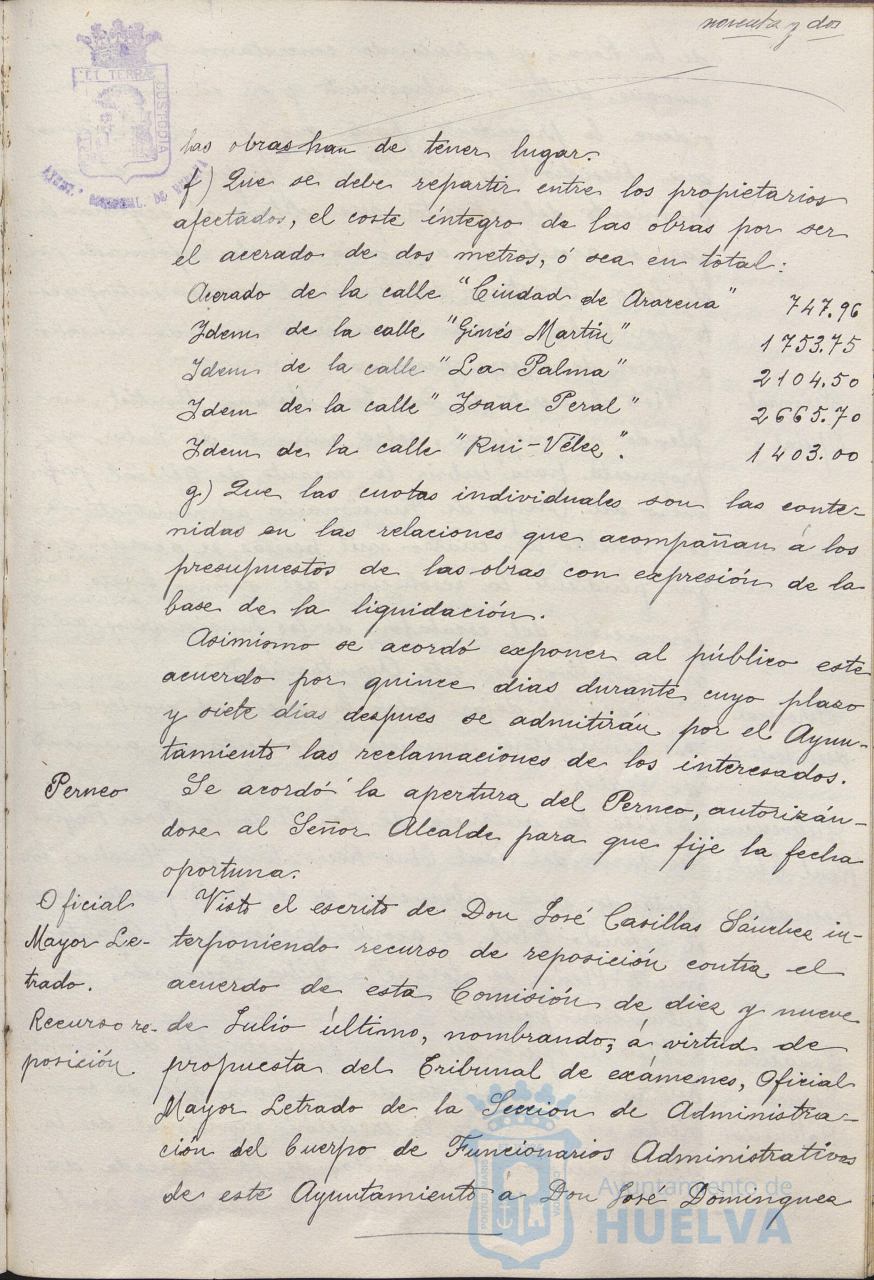 noventa y dos
ET TERRÆ
CUSTODIA
las obras han de tener lugar.
f) Que se debe repartir entre los propietarios
afectados, el coste íntegro de las obras por ser
el acerado de dos metros, ó sea en total:
Acerado de la calle "Ciudad de Aracena" 747.96
Idem de la calle "Ginés Martín" 1753.75
Idem de la calle "La Palma" 2104.50
Idem de la calle "Isaac Peral" 2665.70
Idem de la calle "Rui-Vélez". 1403.00
g.) Que las cuotas individuales son las conte-
nidas en las relaciones que acompañan á los
presupuestos de las obras con expresión de la
base de la liquidación.
Asimismo se acordó exponer al público este
acuerdo por quince dias durante cuyo plazo
y siete días despues se admitirán por el Ayun-
tamiento las reclamaciones de los interesados.
Perneo
Se acordó la apertura del Perneo, autorizán-
dose al Señor Alcalde para que fije la fecha
oportuna.
Oficial
Mayor Le-
trado.
Recurso re-
posición.
Visto el escrito de Don José Casillas Sánchez in-
terponiendo recurso de reposición contra el
acuerdo de esta Comisión de diez y nueve
de Julio último, nombrando, á virtud de
propuesta del Tribunal de exámenes, Oficial
Mayor Letrado de la Seccion de Administra-
ción del Cuerpo de Funcionarios Administrativos
de este Ayuntamiento á Don José Dominguez
Ayuntamiento de
HUELVA